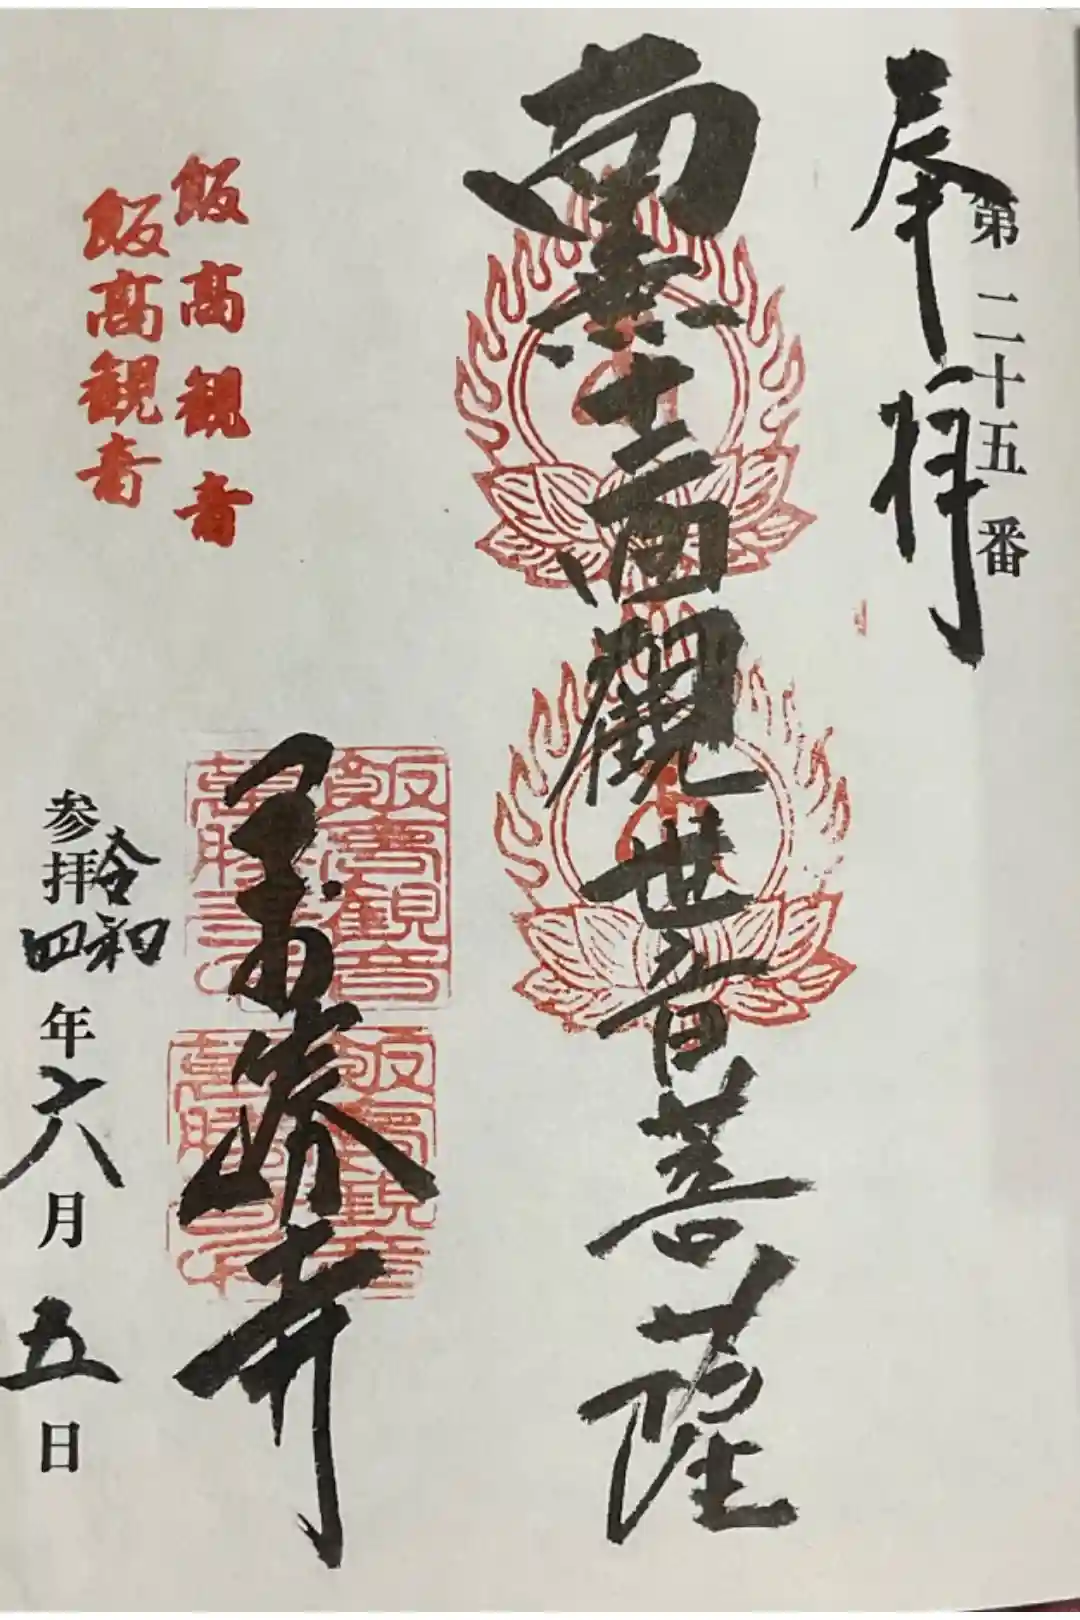 奉拝
第二十五番
十一面観世音菩薩
飯高観音
飯高観音
飯高観音
萬勝寺
令和
参拝四年六月五日